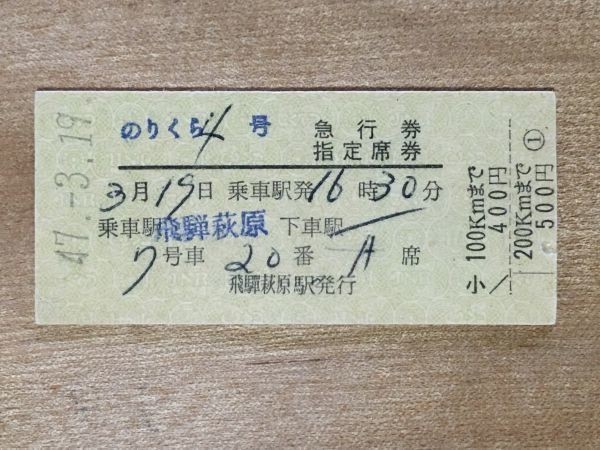 のりくら4号 急行券
指定席券
3月19日 乗車駅発16時30分
乗車駅 飛騨萩原 下車駅
7号車 20番 A席
飛驒萩原駅発行
47.-3.19.
100Kmまで
400円
200Kmまで
500円
①
小